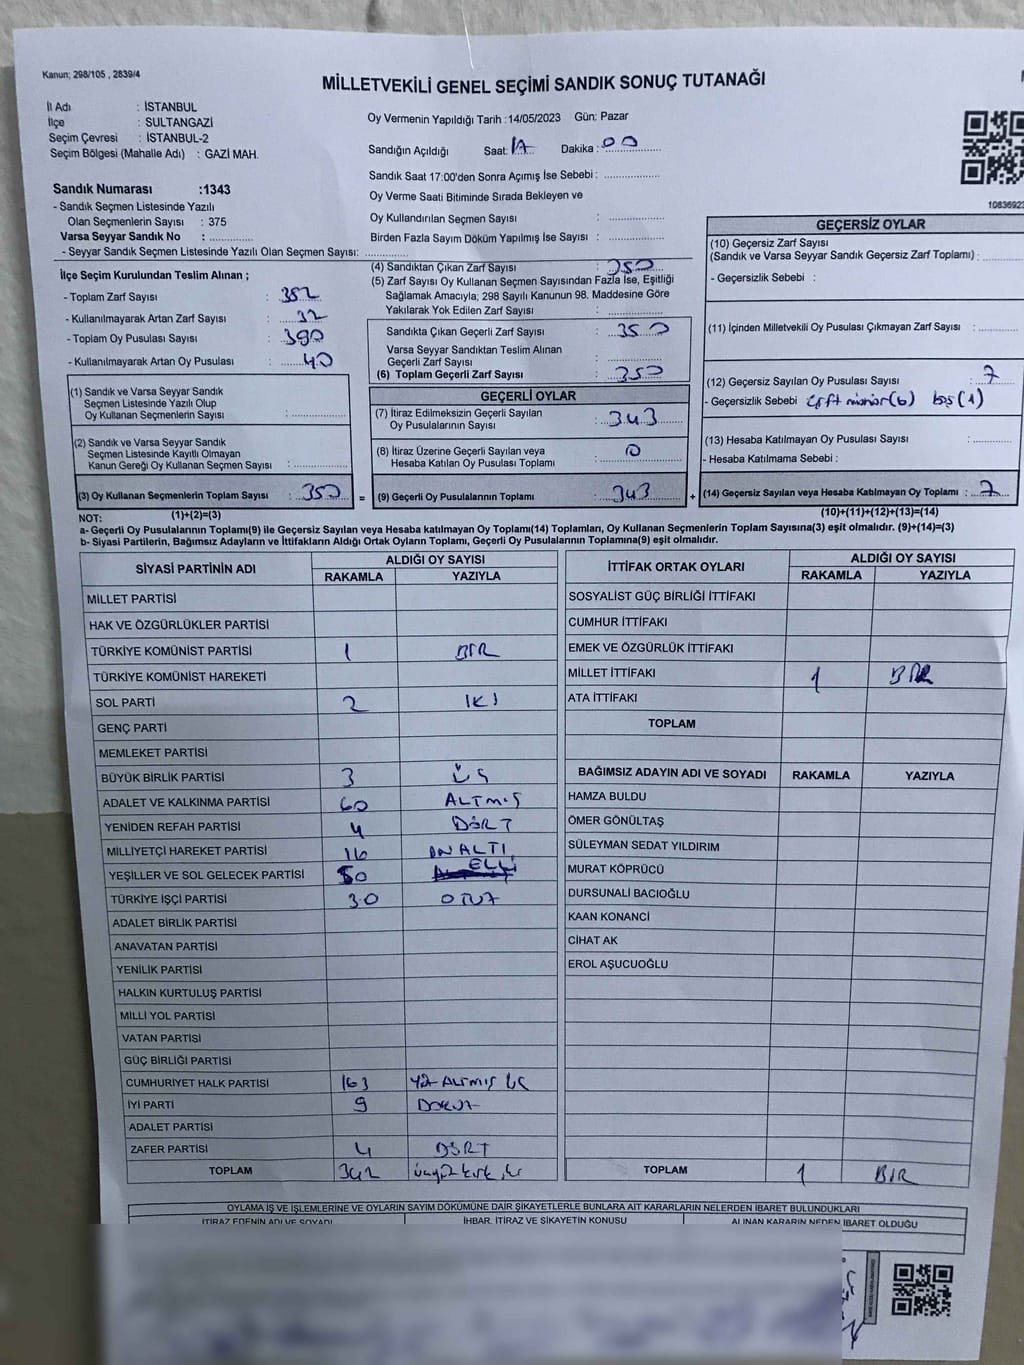 Kanun; 298/105 , 2839/4
MİLLETVEKİLİ GENEL SEÇİMİ SANDIK SONUÇ TUTANAĞI
İl Adı : İSTANBUL
İlçe : SULTANGAZİ
Seçim Çevresi : İSTANBUL-2
Seçim Bölgesi (Mahalle Adı) : GAZİ MAH.
Oy Vermenin Yapıldığı Tarih :14/05/2023 Gün: Pazar
Sandığın Açıldığı Saat: Dakika: 00
Sandık Saat 17:00'den Sonra Açımış İse Sebebi :
Oy Verme Saati Bitiminde Sırada Bekleyen ve
Oy Kullandırılan Seçmen Sayısı :
Birden Fazla Sayım Döküm Yapılmış İse Sayısı :
1083692
Sandık Numarası :1343
- Sandık Seçmen Listesinde Yazılı
Olan Seçmenlerin Sayısı : 375
Varsa Seyyar Sandık No :
- Seyyar Sandık Seçmen Listesinde Yazılı Olan Seçmen Sayısı:
İlçe Seçim Kurulundan Teslim Alınan ;
- Toplam Zarf Sayısı :
- Kullanılmayarak Artan Zarf Sayısı : 32
- Toplam Oy Pusulası Sayısı : 390
- Kullanılmayarak Artan Oy Pusulası : 40
(1) Sandık ve Varsa Seyyar Sandık
Seçmen Listesinde Yazılı Olup
Oy Kullanan Seçmenlerin Sayısı :
(2) Sandık ve Varsa Seyyar Sandık
Seçmen Listesinde Kayıtlı Olmayan
Kanun Gereği Oy Kullanan Seçmen Sayısı :
(3) Oy Kullanan Seçmenlerin Toplam Sayısı : 350 =
(1)+(2)=(3)
(4) Sandıktan Çıkan Zarf Sayısı : 350
(5) Zarf Sayısı Oy Kullanan Seçmen Sayısından Fazla İse, Eşitliği
Sağlamak Amacıyla; 298 Sayılı Kanunun 98. Maddesine Göre
Yakılarak Yok Edilen Zarf Sayısı :
Sandıkta Çıkan Geçerli Zarf Sayısı : 350
Varsa Seyyar Sandıktan Teslim Alınan
Geçerli Zarf Sayısı :
(6) Toplam Geçerli Zarf Sayısı : 350
GEÇERLİ OYLAR
(7) İtiraz Edilmeksizin Geçerli Sayılan
Oy Pusulalarının Sayısı : 343
(8) İtiraz Üzerine Geçerli Sayılan veya
Hesaba Katılan Oy Pusulası Toplamı : 0
(9) Geçerli Oy Pusulalarının Toplamı : 343 +
GEÇERSİZ OYLAR
(10) Geçersiz Zarf Sayısı
(Sandık ve Varsa Seyyar Sandık Geçersiz Zarf Toplamı) :
- Geçersizlik Sebebi :
(11) İçinden Milletvekili Oy Pusulası Çıkmayan Zarf Sayısı :
(12) Geçersiz Sayılan Oy Pusulası Sayısı : 7
- Geçersizlik Sebebi çift mühür(6) boş(1)
(13) Hesaba Katılmayan Oy Pusulası Sayısı :
- Hesaba Katılmama Sebebi :
(14) Geçersiz Sayılan veya Hesaba Katılmayan Oy Toplamı : 7
(10)+(11)+(12)+(13)=(14)
NOT:
a- Geçerli Oy Pusulalarının Toplamı(9) ile Geçersiz Sayılan veya Hesaba katılmayan Oy Toplamı(14) Toplamları, Oy Kullanan Seçmenlerin Toplam Sayısına(3) eşit olmalıdır. (9)+(14)=(3)
b- Siyasi Partilerin, Bağımsız Adayların ve İttifakların Aldığı Ortak Oyların Toplamı, Geçerli Oy Pusulalarının Toplamına(9) eşit olmalıdır.
SİYASİ PARTİNİN ADI ALDIĞI OY SAYISI
RAKAMLA YAZIYLA
MİLLET PARTİSİ
HAK VE ÖZGÜRLÜKLER PARTİSİ
TÜRKİYE KOMÜNİST PARTİSİ 1 BİR
TÜRKİYE KOMÜNİST HAREKETİ
SOL PARTİ 2 İKİ
GENÇ PARTİ
MEMLEKET PARTİSİ
BÜYÜK BİRLİK PARTİSİ 3 ÜÇ
ADALET VE KALKINMA PARTİSİ 60 ALTMIŞ
YENİDEN REFAH PARTİSİ 4 DÖRT
MİLLİYETÇİ HAREKET PARTİSİ 16 ONALTI
YEŞİLLER VE SOL GELECEK PARTİSİ 50 ELLİ
TÜRKİYE İŞÇİ PARTİSİ 30 OTUZ
ADALET BİRLİK PARTİSİ
ANAVATAN PARTİSİ
YENİLİK PARTİSİ
HALKIN KURTULUŞ PARTİSİ
MİLLİ YOL PARTİSİ
VATAN PARTİSİ
GÜÇ BİRLİĞİ PARTİSİ
CUMHURİYET HALK PARTİSİ 163 YÜZ ALTMIŞ ÜÇ
İYİ PARTİ 9 DOKUZ
ADALET PARTİSİ
ZAFER PARTİSİ 4 DÖRT
TOPLAM 342 üçyüz kırk iki
İTTİFAK ORTAK OYLARI ALDIĞI OY SAYISI
RAKAMLA YAZIYLA
SOSYALİST GÜÇ BİRLİĞİ İTTİFAKI
CUMHUR İTTİFAKI
EMEK VE ÖZGÜRLÜK İTTİFAKI
MİLLET İTTİFAKI 1 BİR
ATA İTTİFAKI
TOPLAM
BAĞIMSIZ ADAYIN ADI VE SOYADI RAKAMLA YAZIYLA
HAMZA BULDU
ÖMER GÖNÜLTAŞ
SÜLEYMAN SEDAT YILDIRIM
MURAT KÖPRÜCÜ
DURSUNALİ BACIOĞLU
KAAN KONANCİ
CİHAT AK
EROL AŞUCUOĞLU
TOPLAM 1 BİR
OYLAMA İŞ VE İŞLEMLERİNE VE OYLARIN SAYIM DÖKÜMÜNE DAİR ŞİKAYETLERLE BUNLARA AİT KARARLARIN NELERDEN İBARET BULUNDUKLARI
İTİRAZ EDENİN ADI VE SOYADI İHBAR, İTİRAZ VE ŞİKAYETİN KONUSU ALINAN KARARIN NEDEN İBARET OLDUĞU